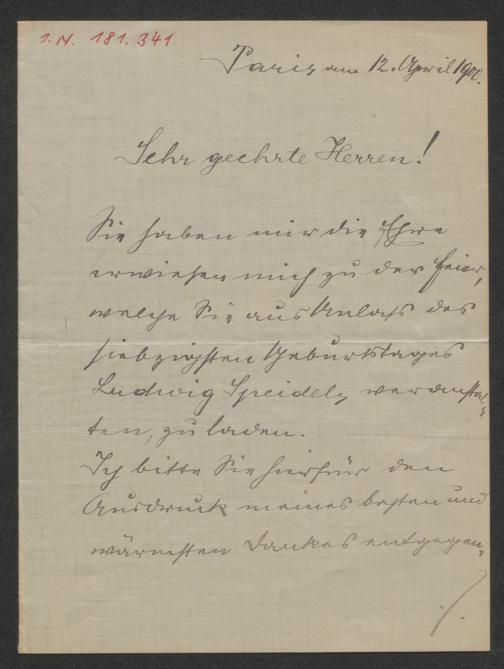 I.N. 181.341
Paris, am 12. April 1900.
Sehr geehrte Herren!
Sie haben mir die Ehre
erwiesen mich zu der Feier,
welche Sie aus Anlass des
siebzigsten Geburtstages
Ludwig Speidels, veranstal-
ten, zu laden.
Ich bitte Sie hierfür den
Ausdruck meines besten und
wärmsten Dankes entgegen-
./.